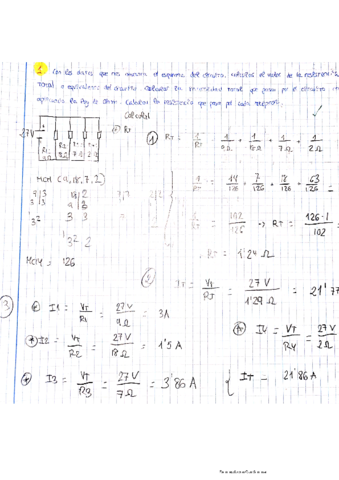 1 Con los datos que nos muestra el esquema del circuito, calcular el valor de la resistencia
total, o equivalente del circuito. Calcular la intensidad total que pasa por el circuito
aplicando la ley de Ohm. Calcular la que pasa por cada receptor.
Calcular
27V
R1 9Ω
① RT = 1/RT = 1/9Ω + 1/18Ω + 1/7Ω + 1/2Ω
MCM (9, 18, 7, 2)
1/RT = 14/126 + 7/126 + 18/126 + 63/126
1/RT = 102/126 → RT = 126·1/102
MCM: 126
RT = 1'24 Ω
② IT = VT/RT = 27 V/1'29 Ω = 21'77
③ I1 = VT/R1 = 27V/9Ω = 3A
I4 = VT/R4 = 27V/2Ω
I2 = VT/R2 = 27V/18Ω = 1'5 A
I3 = VT/R3 = 27V/7Ω = 3'86 A
IT = 21'86 A